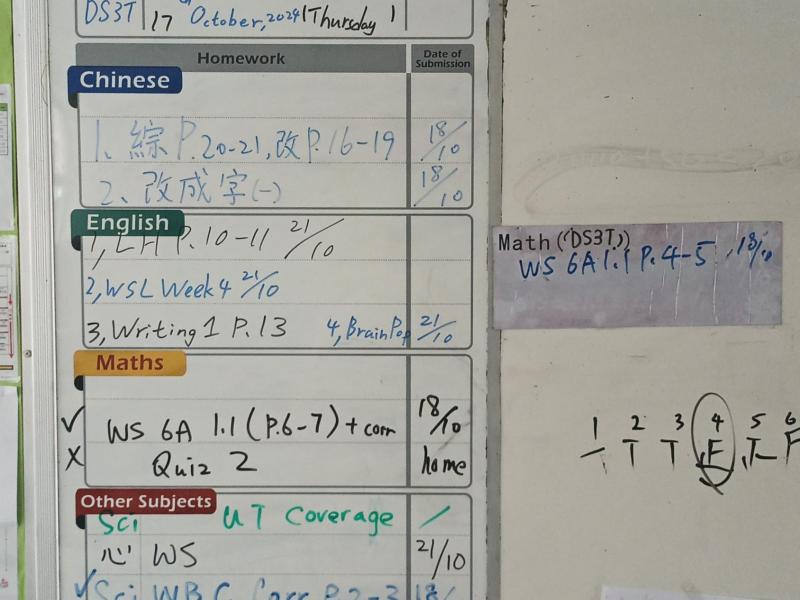 DS3T 17th October, 2024 Thursday
Homework Date of Submission
Chinese
1、綜 P.20-21, 改 P.16-19 18/10
2、改成字(一) 18/10
English
1, LH P.10-11 21/10
2, WSL Week 4 21/10
3, Writing 1 P.13 4, BrainPop 21/10
Maths
✓ WS 6A 1.1 (P.6-7) + corr 18/10
X Quiz 2 home
Other Subjects
Sci UT Coverage /
心 WS 21/10
✓ Sci WB C. Corr P.2-3 18/
Math (DS3T)
WS 6A 1.1 P.4-5, 18/10
1 2 3 4 5 6
– T T F T F